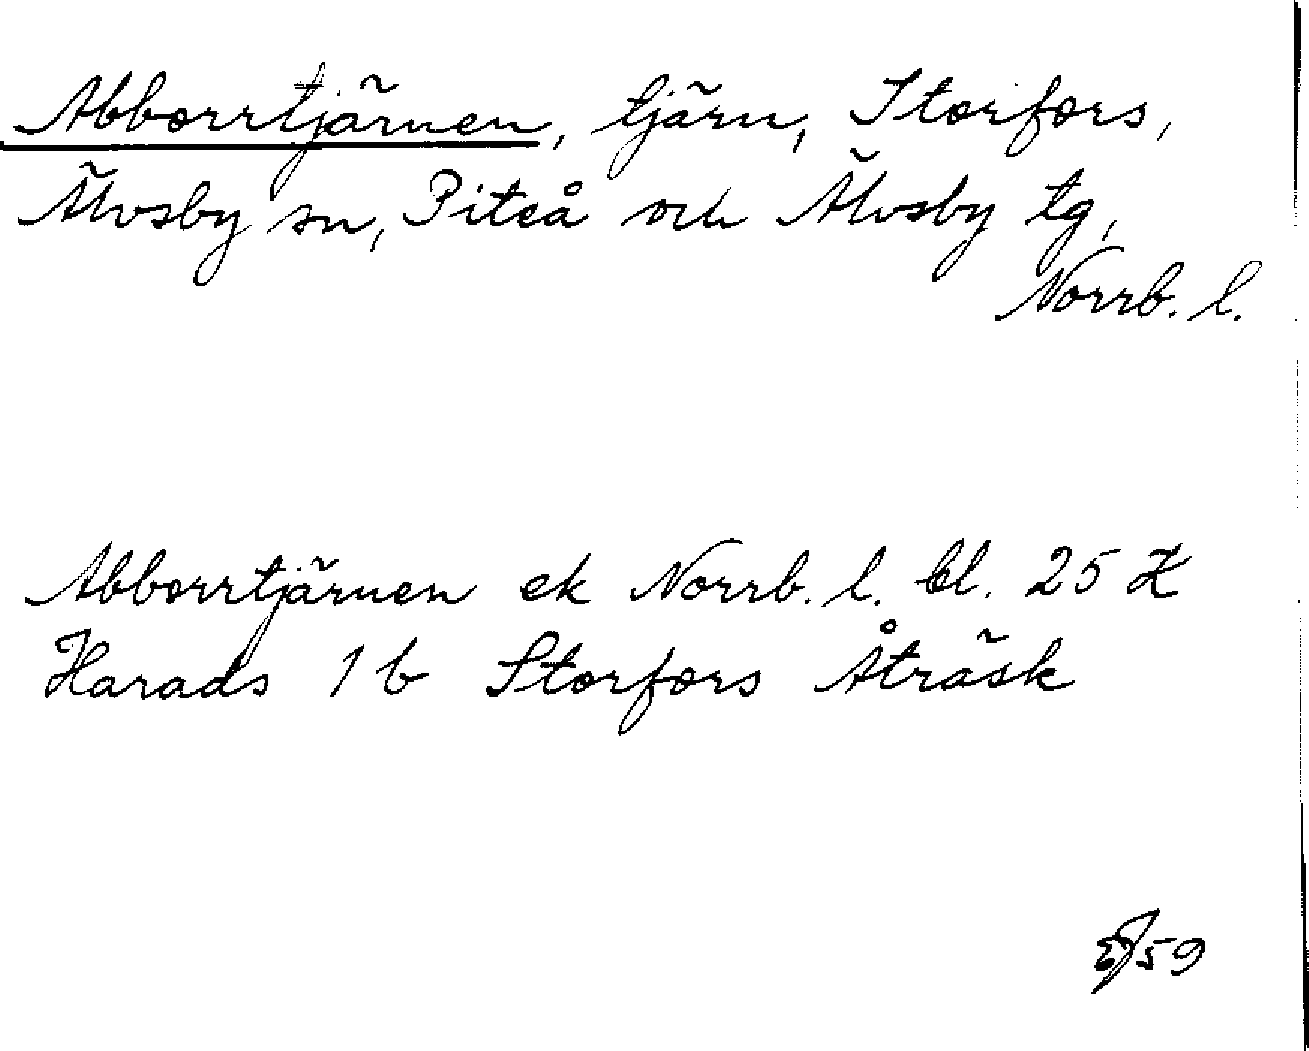 Abborrtjärnen, tjärn, Storfors,
Älvsby sn, Piteå och Älvsby tg,
Norrb. l.
Abborrtjärnen ek Norrb. l. bl. 25 K
Harads 1 b Storfors Åträsk
59